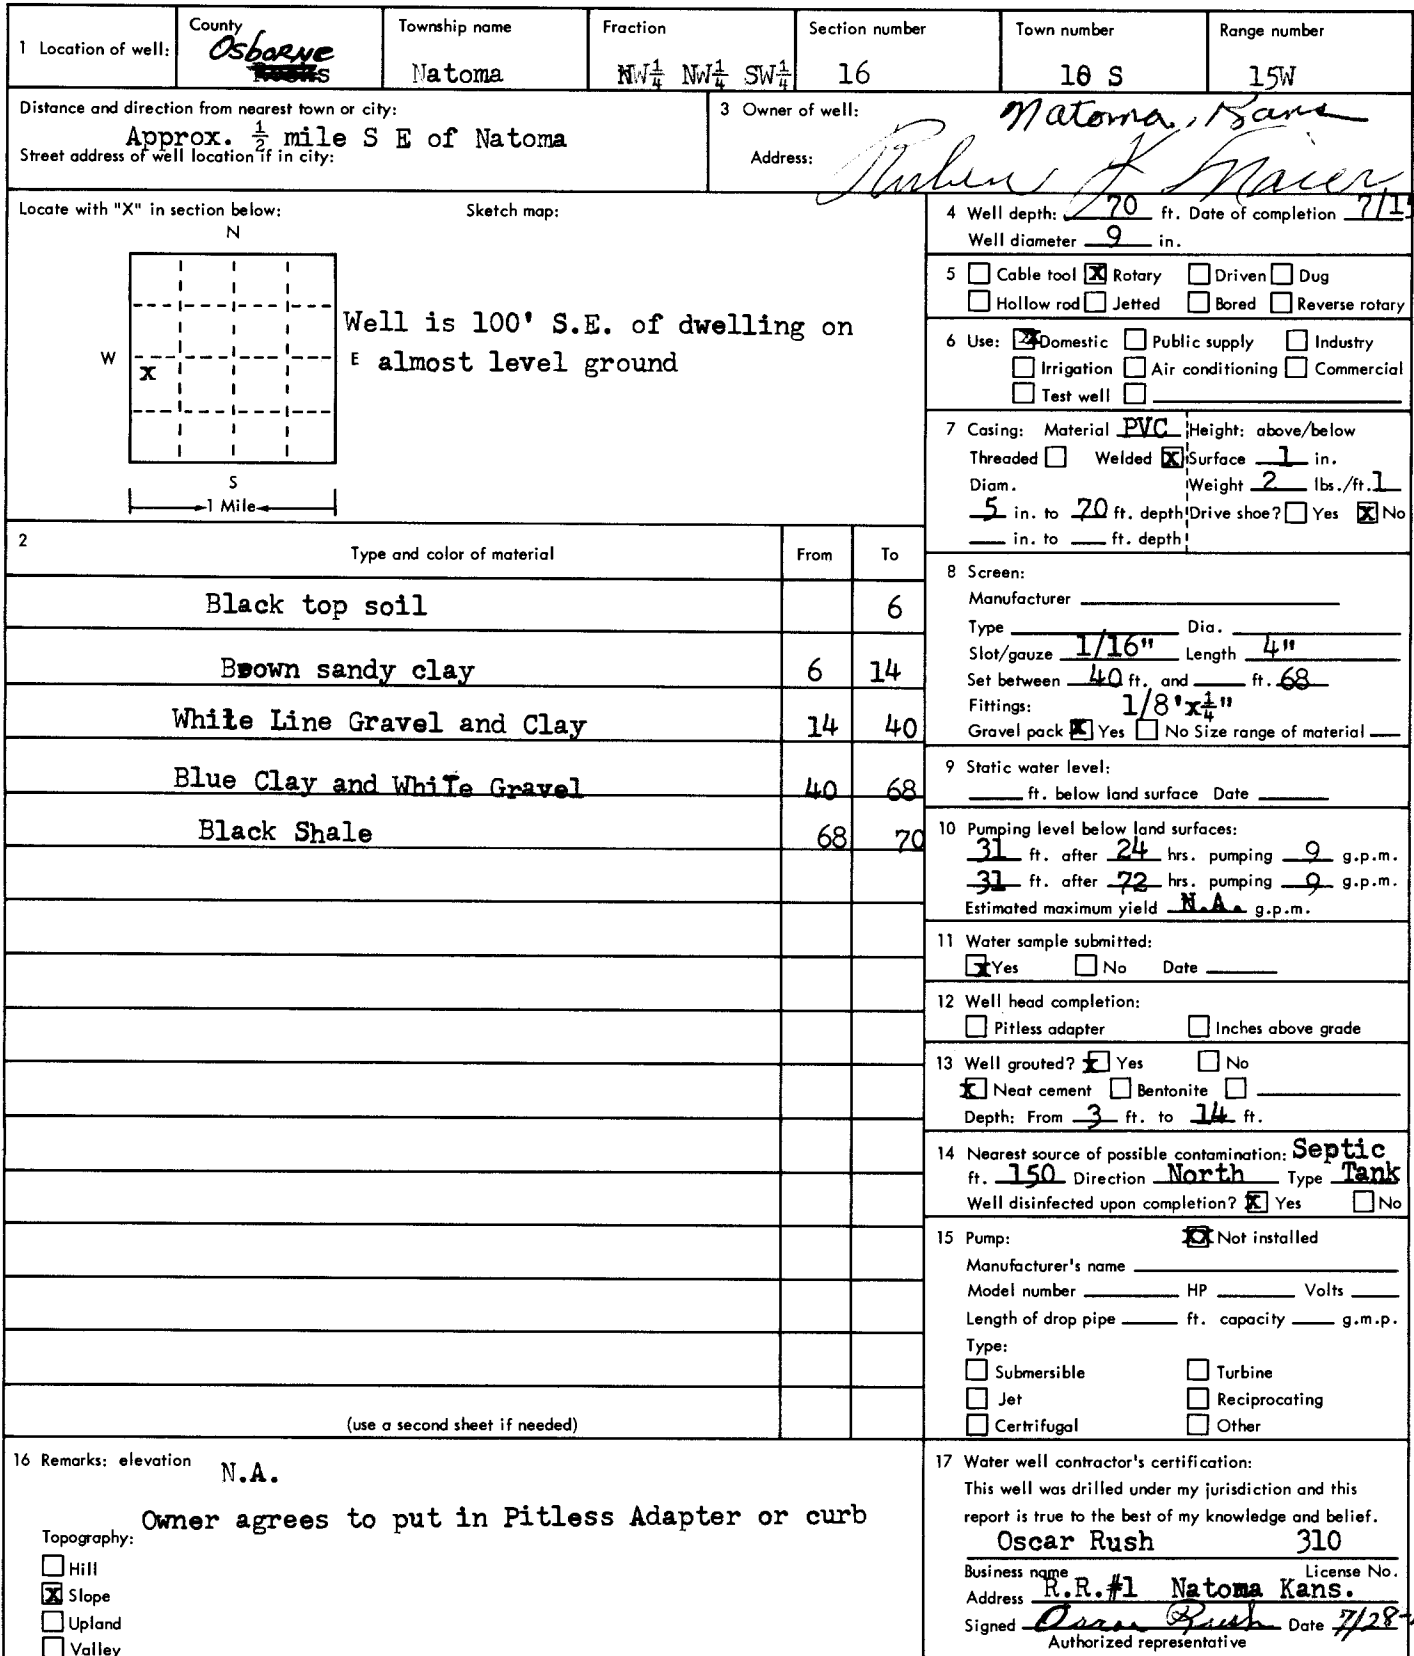 1 Location of well:
County
Osborne
Township name
Natoma
Fraction
NW¼ NW¼ SW¼
Section number
16
Town number
10 S
Range number
15W
Distance and direction from nearest town or city:
Approx. ½ mile S E of Natoma
Street address of well location if in city:
3 Owner of well:
Natoma, Kans
Address:
Ruben K Maier
Locate with "X" in section below:
Sketch map:
N
W
X
E
S
1 Mile
Well is 100' S.E. of dwelling on
almost level ground
4 Well depth: 70 ft. Date of completion 7/15
Well diameter 9 in.
5 Cable tool X Rotary Driven Dug
Hollow rod Jetted Bored Reverse rotary
6 Use: X Domestic Public supply Industry
Irrigation Air conditioning Commercial
Test well
7 Casing: Material PVC Height: above/below
Threaded Welded X Surface 1 in.
Diam. Weight 2 lbs./ft. 1
5 in. to 70 ft. depth Drive shoe? Yes X No
in. to ft. depth
2
Type and color of material From To
Black top soil 6
Brown sandy clay 6 14
White Line Gravel and Clay 14 40
Blue Clay and White Gravel 40 68
Black Shale 68 70
(use a second sheet if needed)
8 Screen:
Manufacturer
Type Dia.
Slot/gauze 1/16" Length 4"
Set between 40 ft. and ft. 68
Fittings: 1/8'x¼"
Gravel pack X Yes No Size range of material
9 Static water level:
ft. below land surface Date
10 Pumping level below land surfaces:
31 ft. after 24 hrs. pumping 9 g.p.m.
31 ft. after 72 hrs. pumping 9 g.p.m.
Estimated maximum yield N.A. g.p.m.
11 Water sample submitted:
X Yes No Date
12 Well head completion:
Pitless adapter Inches above grade
13 Well grouted? X Yes No
X Neat cement Bentonite
Depth: From 3 ft. to 14 ft.
14 Nearest source of possible contamination: Septic
ft. 150 Direction North Type Tank
Well disinfected upon completion? X Yes No
15 Pump: XX Not installed
Manufacturer's name
Model number HP Volts
Length of drop pipe ft. capacity g.m.p.
Type:
Submersible Turbine
Jet Reciprocating
Certrifugal Other
16 Remarks: elevation N.A.
Owner agrees to put in Pitless Adapter or curb
Topography:
Hill
X Slope
Upland
Valley
17 Water well contractor's certification:
This well was drilled under my jurisdiction and this
report is true to the best of my knowledge and belief.
Oscar Rush 310
Business name License No.
Address R.R.#1 Natoma Kans.
Signed Oscar Rush Date 7/28-
Authorized representative